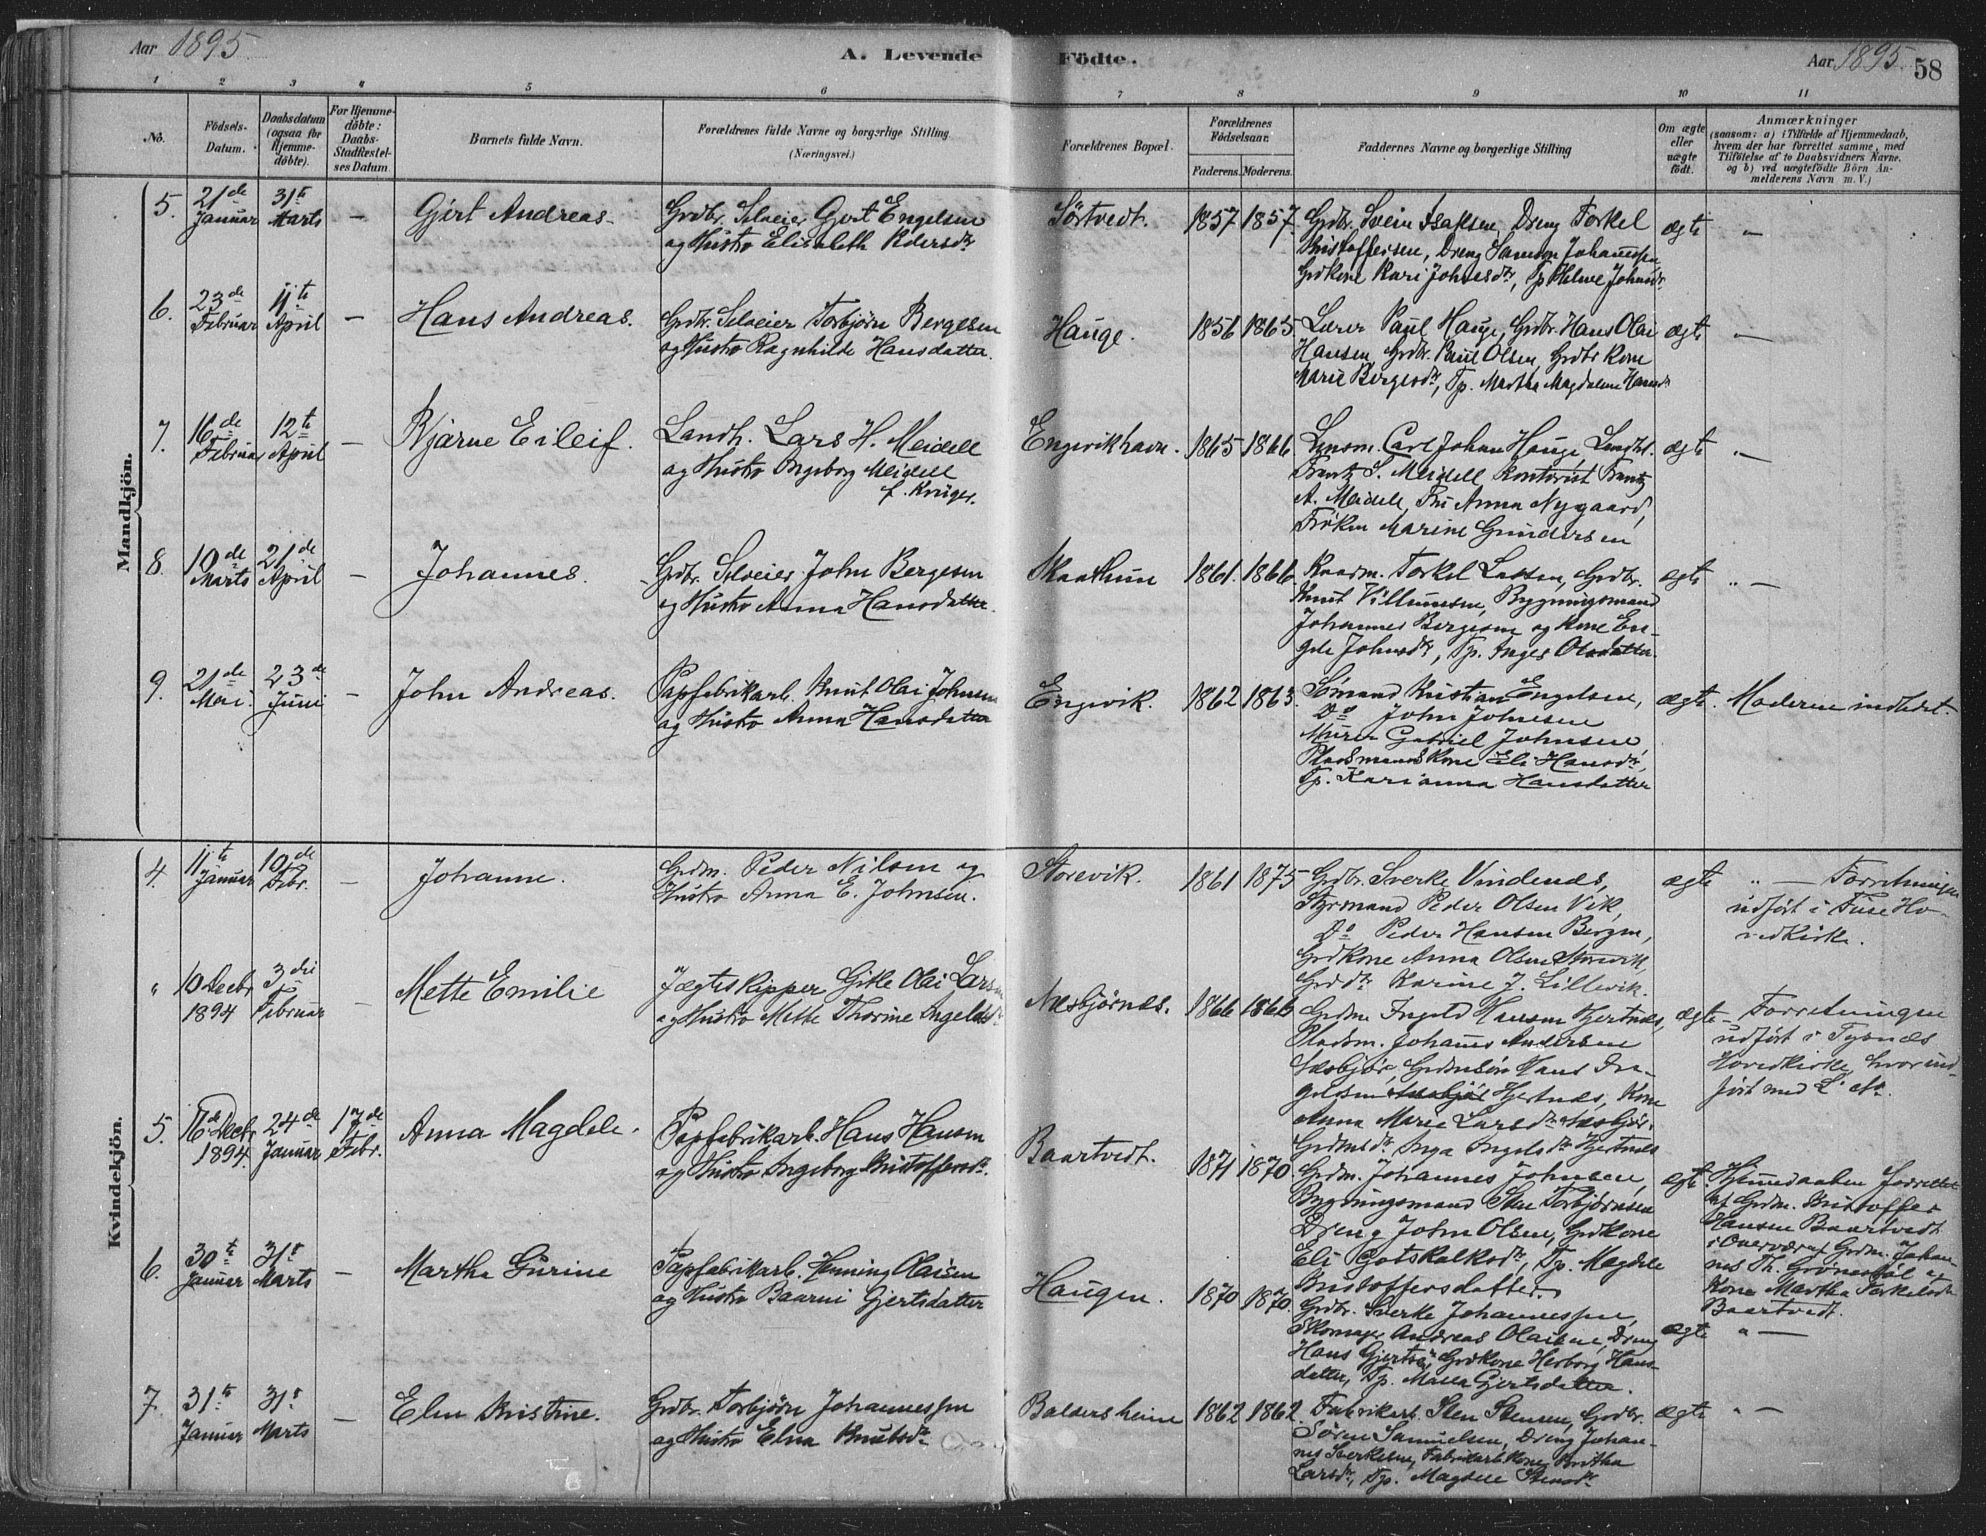 Aar 1895 A. Levende Födte. Aar 1895 58
1 2 3 4 5 6 7 8 9 10 11
No.
Födsels-Datum.
Daabsdatum (ogsaa for Hjemmedöbte).
For Hjemmedöbte: Daabs-Stadfæstelses Datum.
Barnets fulde Navn.
Forældrenes fulde Navne og borgerlige Stilling
(Næringsvei.)
Forældrenes Bopæl.
Forældrenes Födselsaar.
Faderens. Moderens.
Faddernes Navne og borgerlige Stilling
Om ægte eller uægte födt.
Anmærkninger
(saasom: a) i Tilfælde af Hjemmedaab,
hvem der har forrettet samme, med
Tilföielse af to Daabsvidners Navne,
og b) ved uægtefödte Börn Anmelderens Navn m. V.)
Mandkjön.
5. 21de Januar 31te Marts — Gjert Andreas. Grdbr. Selveier Gjert Engelsen
og Hustro Elisabeth Pedersdtr
Sörtvedt. 1857 1857. Grdbr. Svein Isaksen, Dreng Torkel
Kristoffersen, Dreng Samson Johannessen,
Grdkone Kari Johnesdtr, Tp. Helene Johnsdtr. ægte " —
6. 23de Februar 11te April — Hans Andreas. Grdbr. Selveier Torbjørn Bergesen
og Hustro Ragnhilde Hansdatter.
Hauge. 1856 1865 Lærer Paul Hauge, Grdbr. Hans Olai
Hansen, Grdbr. Paul Olsen, Grdbr Kone
Marie Bergesdtr, Tp. Martha Magdalene Hansdtr ægte " —
7. 16de Februar 12te April — Bjarne Eileif. Landh. Lars H. Meidell
og Hustro Ingeborg Meidell
f. Krüger.
Engevikhavn. 1865 1866 Lensm. Carl Johan Hauge, Landh.
Frantz S. Meidell, Kontorist Frantz
A. Meidell, Fru Anna Nygaard,
Frøken Marine Gundersen ægte " —
8. 10de Marts 21de April — Johannes. Grdbr. Selveier John Bergesen
og Hustro Anna Hansdatter.
Skaathun 1861. 1866. Kaarm. Torkel Larsen, Grdbr.
Knut Villumsen, Bygningsmand
Johannes Bergesen og Kone Engele
Johnsdtr, Tp. Inger Olsdatter. ægte " —
9. 21de Mai. 23de Juni — John Andreas. Papfabrikarb. Knut Olai Johnsen
og Hustro Anna Hansdatter
Engevik. 1862 1863. Sømand Kristian Engelsen,
Do John Johnsen
Murer Gabriel Johnsen,
Pladsmandskone Eli Hansdtr,
Tp. Karianna Hansdatter ægte. Moderen indledet.
Kvindekjön.
4. 11te Januar 10de Febr. — Johanne. Grdm. Peder Nilsen og
Hustro Anna E. Johnsen.
Storevik. 1861 1875 Grdbr. Sverke Vindenes,
Styrmand Peder Olsen Vik,
Do Peder Hansen Bergen,
Grdkone Anna Olsen Storevik,
Grddtr Karine J. Lillevik. ægte " — Forretningen
udført i Fuse Hovedkirke.
" 10 Decbr 1894 3die Februar — Mette Emilie Jægtskipper Gitle Olai Larsen
og Hustro Mette Thorine Ingelds
Næsbjørnes. 1866 1866 Grdm Ingeld Hansen Hjertnes,
Pladsm. Johannes Andersen
Næsbjør, Grdmsøn Hans Ingeldsen
Hjertnes, Kone
Anna Marie Larsdtr Næsbjør,
Grdmsdtr Inga Ingelsdtr Hjertnes ægte — Forretningen
udført i Tysnes
Hovedkirke, hvor indført
med L. No.
5. 16de Decbr 1894. 24de Januar 17de Febr. Anna Magdele. Papfabrikarb. Hans Hansen
og Hustro Ingeborg Kristoffersdtr.
Baartvedt. 1871 1870 Grdm. Johannes Johnsen,
Bygningsmand Sten Torbjørnsen
Dreng John Olsen, Grdkone
Eli Gotskalksdtr, Tp. Magdele
Kristoffersdatter. ægte. Hjemmedaaben forrettet
af Grdm. Kristoffer
Hansen Baartvedt
i Overvær af Grdm. Johannes
Th. og
Kone Martha Torkelsdtr
Baartvedt.
6. 30te Januar 31te Marts — Martha Gurine Papfabrikarb. Henning Olaisen
og Hustro Baarni Gjertsdatter
Haugen. 1870 1870. Grdbr. Sverke Johannessen,
Skomager Andreas Olaisen, Dreng
Hans Gjertsen, Grdkone Herborg Hansdatter,
Tp. Marta Gjertsdatter. ægte " —
7. 31te Januar 31te Marts — Elen Kristine. Grdbr. Torbjørn Johannessen
og Hustro Elna Knutsdtr
Baldersheim 1862 1862. Fabrikarb. Sten Stensen, Grdbr.
Søren Samuelsen, Dreng Johannes
Sverkesen, Fabrikarb. Kone Britha
Larsdtr, Tp. Magdele Stensdtr ægte " —